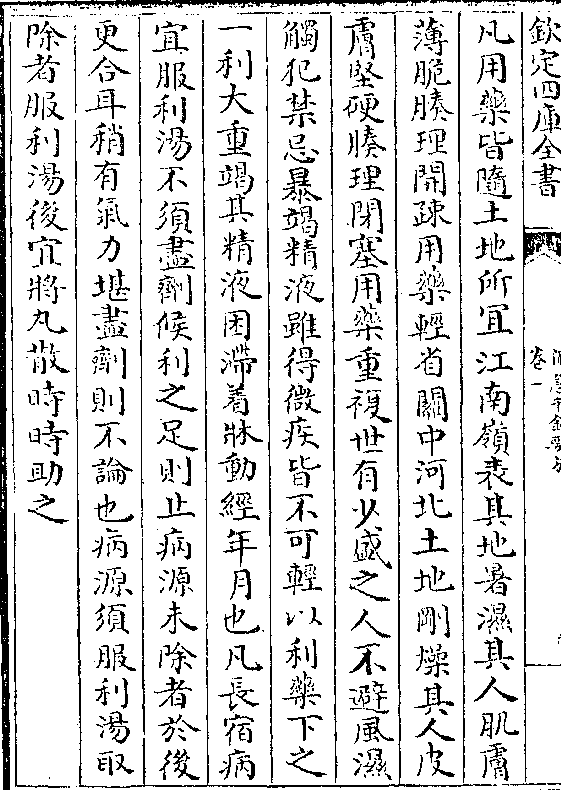 欽定四庫全書
卷一
凡用藥皆隨土地所宜江南嶺表其地暑濕其人肌膚
薄脆腠理開疎用藥輕省關中河北土地剛燥其人皮
膚堅硬腠理閉塞用藥重複世有少盛之人不避風濕
觸犯禁忌暴竭精液雖得微疾皆不可輕以利藥下之
一利大重竭其精液困滯着牀動經年月也凡長宿病
宜服利湯不須盡劑候利之足則止病源未除者於後
更合耳稍有氣力堪盡劑則不論也病源須服利湯取
除者服利湯後宜將丸散時時助之